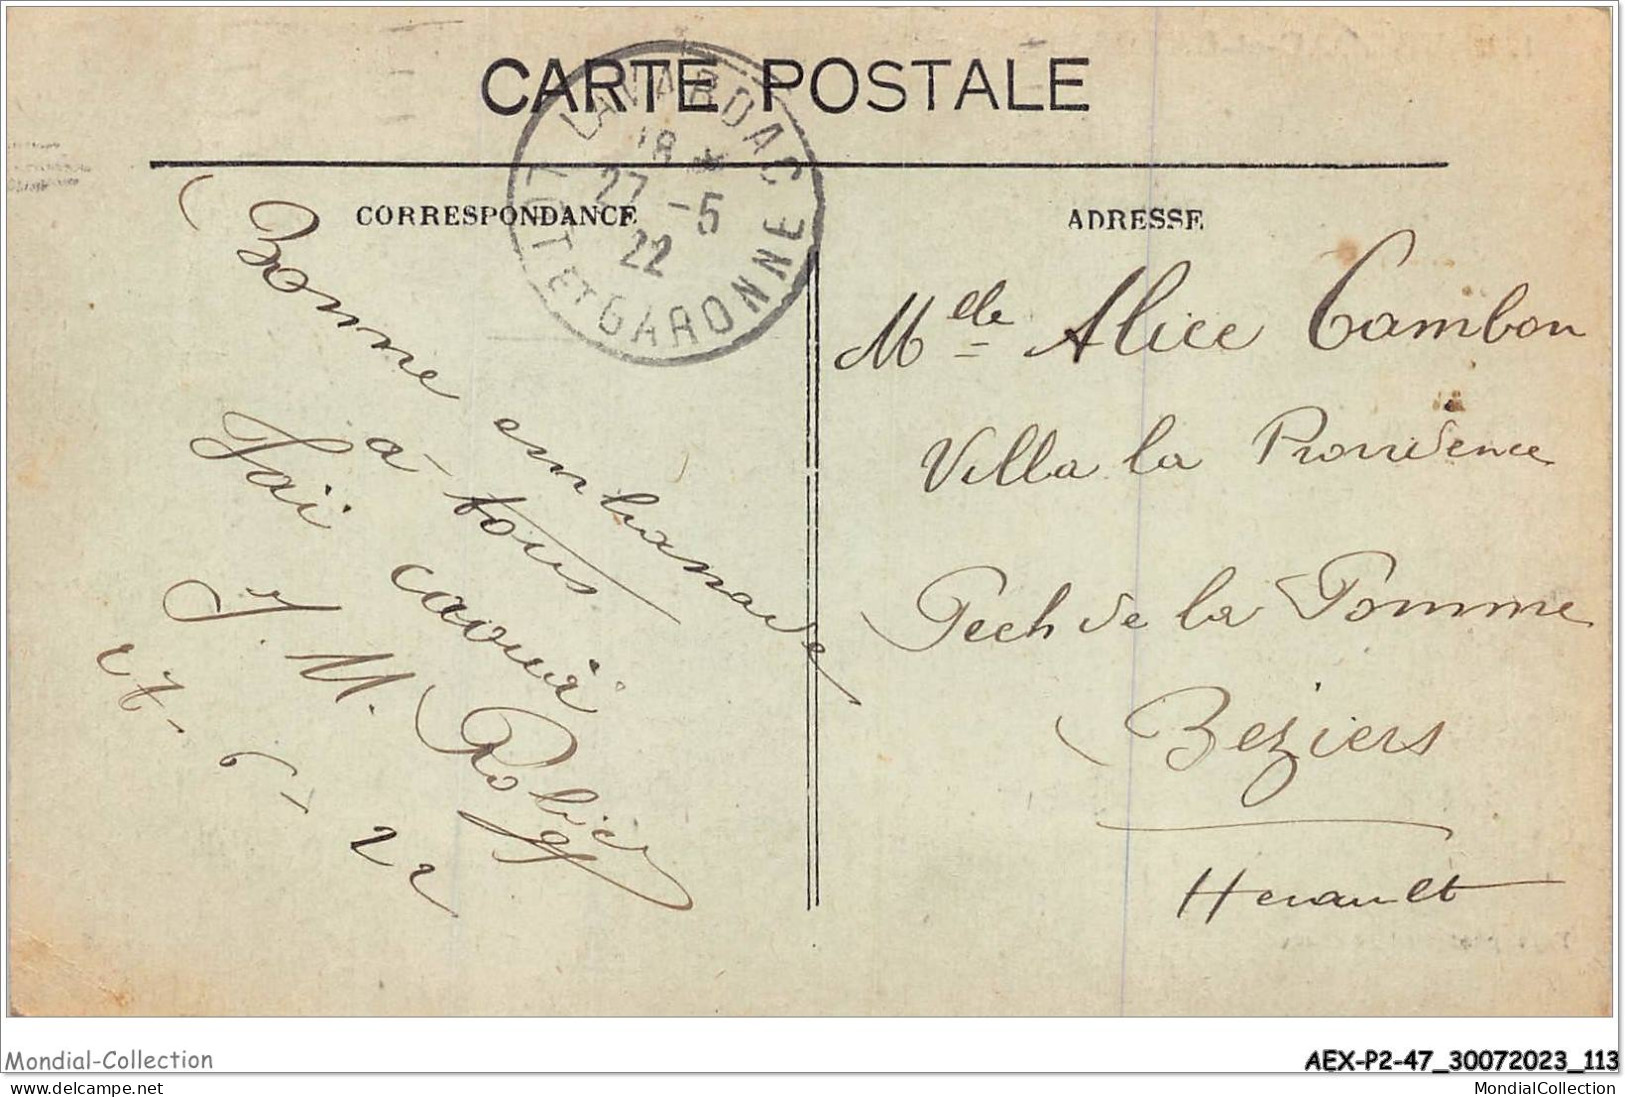 CARTE POSTALE
LAVARDAC
18 *
27 -5
22
LOT ET GARONNE
CORRESPONDANCE
ADRESSE
Bonne embrassade
a tous
J'ai
J. M.
27-5-22
Melle Alice Cambon
Villa la Providence
Pech de la Pomme
Beziers
Herault
Mondial-Collection
AEX-P2-47_30072023_113
www.delcampe.net
MondialCollection